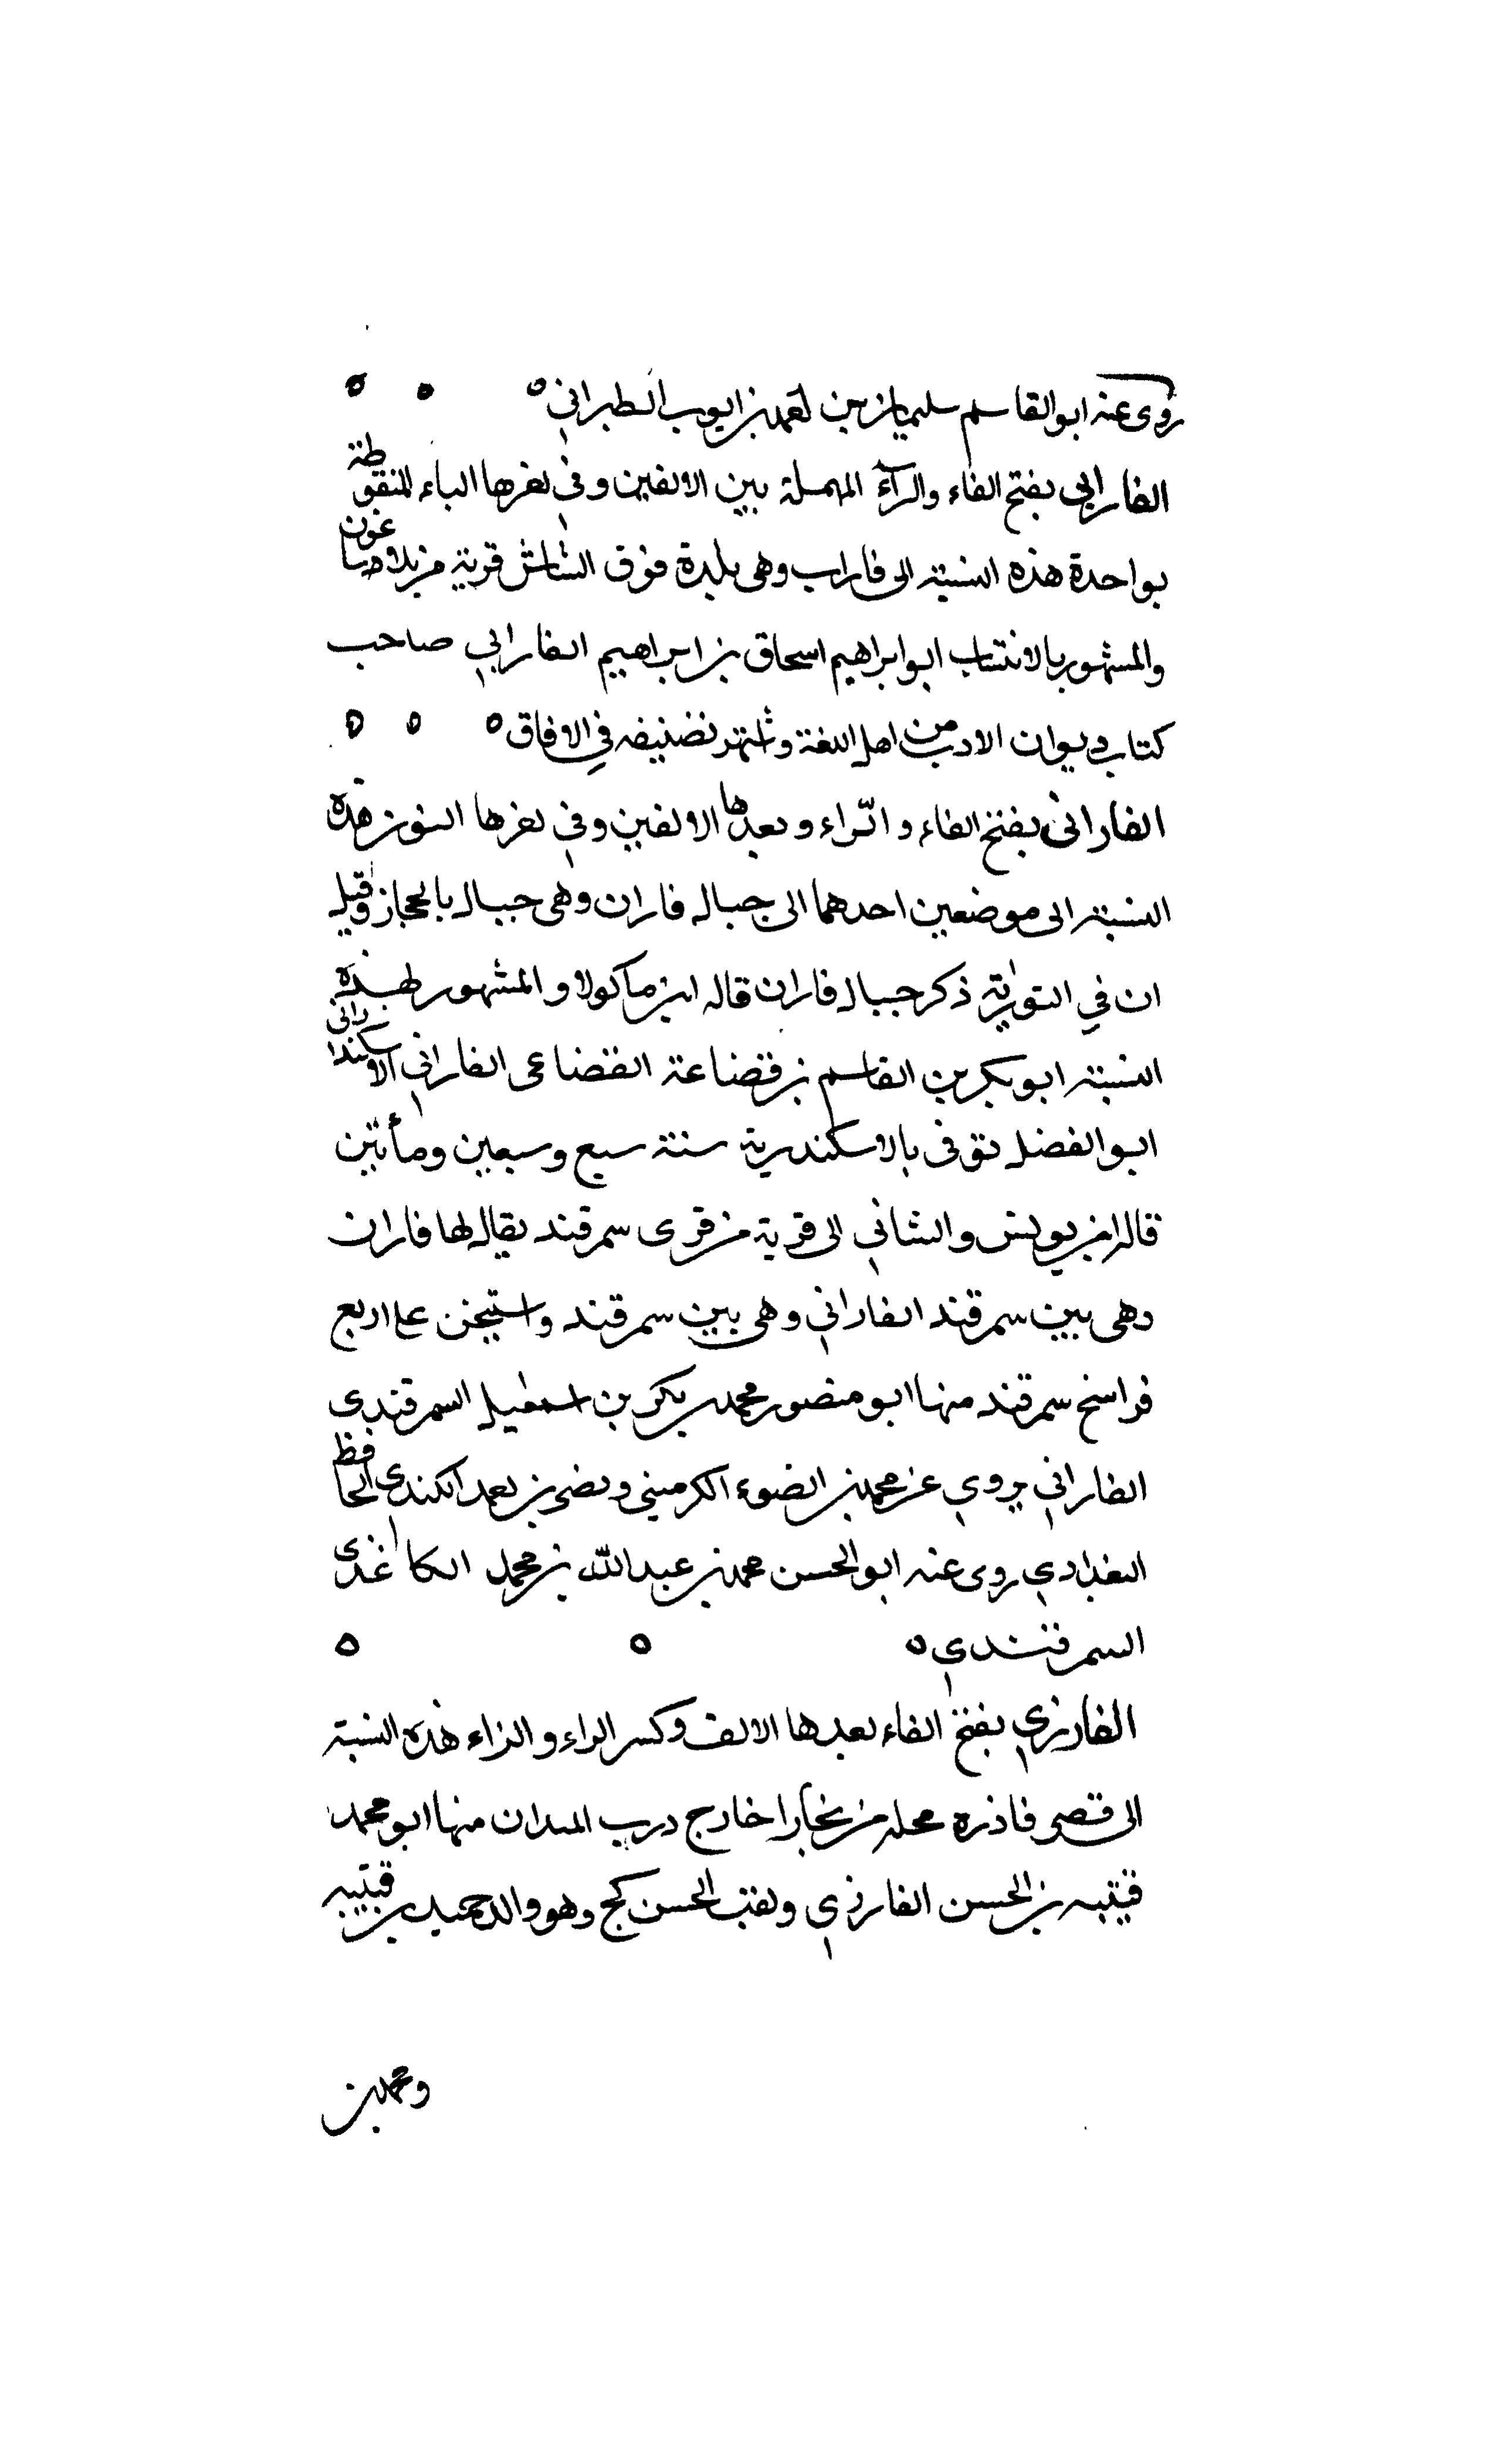 روى عنه ابو القاسم سليمان بن احمد بن ايوب الطبراني ه ه ه
الفارابي بفتح الفاء والراء المهملة بين الالفين وفي اخرها الباء المنقوطة
بواحدة هذه النسبة الى فاراب وهى بلدة فوق الشاش قريبة من بلاساغون
والمشهور بالانتساب ابو ابراهيم اسحاق بن ابراهيم الفارابي صاحب
كتاب ديوان الادب من اهل اللغة واشتهر تصنيفه في الافاق ه ه ه
الفاراني بفتح الفاء والراء وبعدها الالفين وفي اخرها النون هذه
النسبة الى موضعين احدهما الى جبال فاران وهى جبال بالحجاز وقيل
ان في التورية ذكر جبال فاران قاله ابن ماكولا والمشهور بهذه
النسبة ابو بكر بن القاسم بن قضاعة القضاعى الفاراني الاسكندرانى
ابو الفضل توفى بالاسكندرية سنة سبع وسبعين ومأتين
قاله ابن يونس والثاني الى قرية من قرى سمرقند يقال لها فاران
وهى بين سمرقند الفاراني وهى بين سمرقند واستيخن على اربع
فراسخ سمرقند منها ابو منصور محمد بن بكر بن اسمعيل السمرقندى
الفاراني يروي عن محمد بن الضوء الكرمينى ونصر بن احمد الكندى الحافظ
البغدادي روى عنه ابو الحسن محمد بن عبد الله بن محمد الكاغدى
السمرقندي ه ه ه
الفارزي بفتح الفاء بعدها الالف وكسر الراء والزاء هذه النسبة
الى فارزه محله من بخارا خارج درب الميدان منها ابو محمد
قتيبه بن الحسن الفارزي ولقب الحسن كج وهو والد حميد بن قتيبه
ومحمد بن